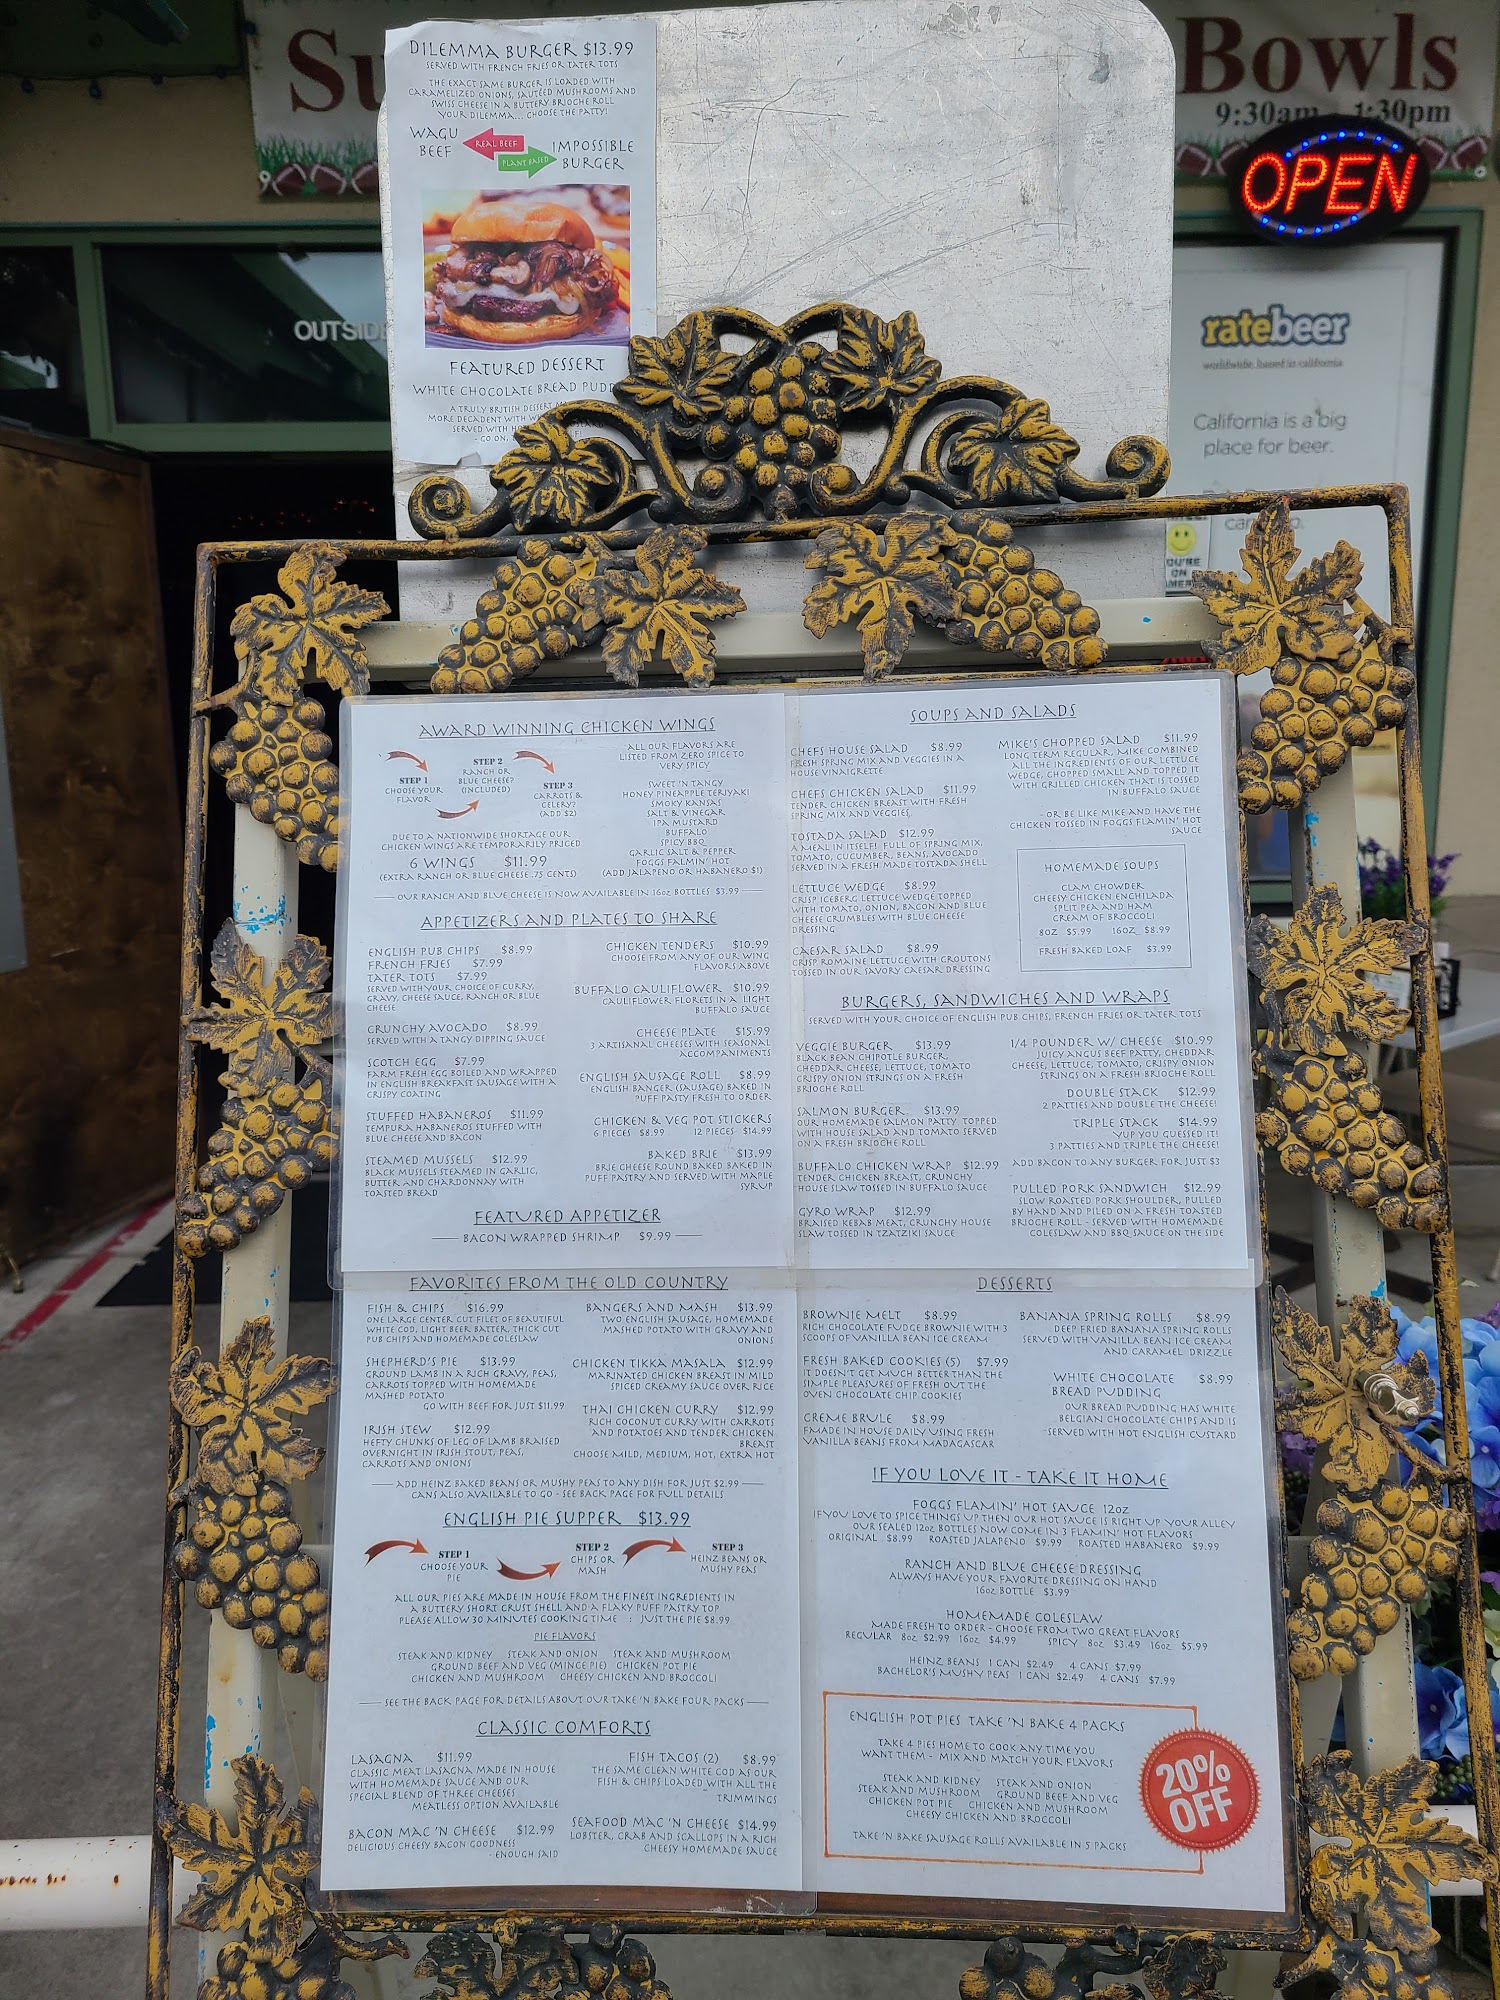 Su
Bowls
9:30am - 1:30pm
OPEN
OUTSIDE
ratebeer
worldwide. based in california
California is a big
place for beer.
DILEMMA BURGER $13.99
SERVED WITH FRENCH FRIES OR TATER TOTS
THE EXACT SAME BURGER IS LOADED WITH
CARAMELIZED ONIONS, SAUTÉED MUSHROOMS AND
SWISS CHEESE IN A BUTTERY BRIOCHE ROLL
YOUR DILEMMA... CHOOSE THE PATTY!
WAGU
BEEF
REAL BEEF
PLANT BASED
IMPOSSIBLE
BURGER
FEATURED DESSERT
WHITE CHOCOLATE BREAD PUDD
A TRULY BRITISH DESSERT
MORE DECADENT WITH
SERVED WITH
- GO ON,
AWARD WINNING CHICKEN WINGS
STEP 1
CHOOSE YOUR
FLAVOR
STEP 2
RANCH OR
BLUE CHEESE?
(INCLUDED)
STEP 3
CARROTS &
CELERY?
(ADD $2)
DUE TO A NATIONWIDE SHORTAGE OUR
CHICKEN WINGS ARE TEMPORARILY PRICED
6 WINGS $11.99
(EXTRA RANCH OR BLUE CHEESE .75 CENTS)
ALL OUR FLAVORS ARE
LISTED FROM ZERO SPICE TO
VERY SPICY
SWEET 'N TANGY
HONEY PINEAPPLE TERIYAKI
SMOKY KANSAS
SALT & VINEGAR
IPA MUSTARD
BUFFALO
SPICY BBQ
GARLIC SALT & PEPPER
FOGGS FALMIN' HOT
(ADD JALAPENO OR HABANERO $1)
OUR RANCH AND BLUE CHEESE IS NOW AVAILABLE IN 16oz BOTTLES $3.99
APPETIZERS AND PLATES TO SHARE
ENGLISH PUB CHIPS $8.99
FRENCH FRIES $7.99
TATER TOTS $7.99
SERVED WITH YOUR CHOICE OF CURRY,
GRAVY, CHEESE SAUCE, RANCH OR BLUE
CHEESE
CRUNCHY AVOCADO $8.99
SERVED WITH A TANGY DIPPING SAUCE
SCOTCH EGG $7.99
FARM FRESH EGG BOILED AND WRAPPED
IN ENGLISH BREAKFAST SAUSAGE WITH A
CRISPY COATING
STUFFED HABANEROS $11.99
TEMPURA HABANEROS STUFFED WITH
BLUE CHEESE AND BACON
STEAMED MUSSELS $12.99
BLACK MUSSELS STEAMED IN GARLIC,
BUTTER AND CHARDONNAY WITH
TOASTED BREAD
CHICKEN TENDERS $10.99
CHOOSE FROM ANY OF OUR WING
FLAVORS ABOVE
BUFFALO CAULIFLOWER $10.99
CAULIFLOWER FLORETS IN A LIGHT
BUFFALO SAUCE
CHEESE PLATE $15.99
3 ARTISANAL CHEESES WITH SEASONAL
ACCOMPANIMENTS
ENGLISH SAUSAGE ROLL $8.99
ENGLISH BANGER (SAUSAGE) BAKED IN
PUFF PASTY FRESH TO ORDER
CHICKEN & VEG POT STICKERS
6 PIECES $8.99 12 PIECES $14.99
BAKED BRIE $13.99
BRIE CHEESE ROUND BAKED BAKED IN
PUFF PASTRY AND SERVED WITH MAPLE
SYRUP
FEATURED APPETIZER
BACON WRAPPED SHRIMP $9.99
SOUPS AND SALADS
CHEFS HOUSE SALAD $8.99
FRESH SPRING MIX AND VEGGIES IN A
HOUSE VINAIGRETTE
CHEFS CHICKEN SALAD $11.99
TENDER CHICKEN BREAST WITH FRESH
SPRING MIX AND VEGGIES
TOSTADA SALAD $12.99
A MEAL IN ITSELF! FULL OF SPRING MIX,
TOMATO, CUCUMBER, BEANS, AVOCADO
SERVED IN A FRESH MADE TOSTADA SHELL
LETTUCE WEDGE $8.99
CRISP ICEBERG LETTUCE WEDGE TOPPED
WITH TOMATO, ONION, BACON AND BLUE
CHEESE CRUMBLES WITH BLUE CHEESE
DRESSING
CAESAR SALAD $8.99
CRISP ROMAINE LETTUCE WITH CROUTONS
TOSSED IN OUR SAVORY CAESAR DRESSING
MIKE'S CHOPPED SALAD $11.99
LONG TERM REGULAR, MIKE COMBINED
ALL THE INGREDIENTS OF OUR LETTUCE
WEDGE, CHOPPED SMALL AND TOPPED IT
WITH GRILLED CHICKEN THAT IS TOSSED
IN BUFFALO SAUCE
- OR BE LIKE MIKE AND HAVE THE
CHICKEN TOSSED IN FOGGS FLAMIN' HOT
SAUCE
HOMEMADE SOUPS
CLAM CHOWDER
CHEESY CHICKEN ENCHILADA
SPLIT PEA AND HAM
CREAM OF BROCCOLI
8OZ $5.99 16OZ $8.99
FRESH BAKED LOAF $3.99
BURGERS, SANDWICHES AND WRAPS
SERVED WITH YOUR CHOICE OF ENGLISH PUB CHIPS, FRENCH FRIES OR TATER TOTS
VEGGIE BURGER $13.99
BLACK BEAN CHIPOTLE BURGER,
CHEDDAR CHEESE, LETTUCE, TOMATO
CRISPY ONION STRINGS ON A FRESH
BRIOCHE ROLL
SALMON BURGER $13.99
OUR HOMEMADE SALMON PATTY TOPPED
WITH HOUSE SALAD AND TOMATO SERVED
ON A FRESH BRIOCHE ROLL
BUFFALO CHICKEN WRAP $12.99
TENDER CHICKEN BREAST, CRUNCHY
HOUSE SLAW TOSSED IN BUFFALO SAUCE
GYRO WRAP $12.99
BRAISED KEBAB MEAT, CRUNCHY HOUSE
SLAW TOSSED IN TZATZIKI SAUCE
1/4 POUNDER W/ CHEESE $10.99
JUICY ANGUS BEEF PATTY, CHEDDAR
CHEESE, LETTUCE, TOMATO, CRISPY ONION
STRINGS ON A FRESH BRIOCHE ROLL
DOUBLE STACK $12.99
2 PATTIES AND DOUBLE THE CHEESE!
TRIPLE STACK $14.99
YUP YOU GUESSED IT!
3 PATTIES AND TRIPLE THE CHEESE!
ADD BACON TO ANY BURGER FOR JUST $3
PULLED PORK SANDWICH $12.99
SLOW ROASTED PORK SHOULDER, PULLED
BY HAND AND PILED ON A FRESH TOASTED
BRIOCHE ROLL - SERVED WITH HOMEMADE
COLESLAW AND BBQ SAUCE ON THE SIDE
FAVORITES FROM THE OLD COUNTRY
FISH & CHIPS $16.99
ONE LARGE CENTER CUT FILET OF BEAUTIFUL
WHITE COD, LIGHT BEER BATTER, THICK CUT
PUB CHIPS AND HOMEMADE COLESLAW
SHEPHERD'S PIE $13.99
GROUND LAMB IN A RICH GRAVY, PEAS,
CARROTS TOPPED WITH HOMEMADE
MASHED POTATO
GO WITH BEEF FOR JUST $11.99
IRISH STEW $12.99
HEFTY CHUNKS OF LEG OF LAMB BRAISED
OVERNIGHT IN IRISH STOUT, PEAS,
CARROTS AND ONIONS
BANGERS AND MASH $13.99
TWO ENGLISH SAUSAGE, HOMEMADE
MASHED POTATO WITH GRAVY AND
ONIONS
CHICKEN TIKKA MASALA $12.99
MARINATED CHICKEN BREAST IN MILD
SPICED CREAMY SAUCE OVER RICE
THAI CHICKEN CURRY $12.99
RICH COCONUT CURRY WITH CARROTS
AND POTATOES AND TENDER CHICKEN
BREAST
CHOOSE MILD, MEDIUM, HOT, EXTRA HOT
ADD HEINZ BAKED BEANS OR MUSHY PEAS TO ANY DISH FOR JUST $2.99
CANS ALSO AVAILABLE TO GO - SEE BACK PAGE FOR FULL DETAILS
ENGLISH PIE SUPPER $13.99
STEP 1
CHOOSE YOUR
PIE
STEP 2
CHIPS OR
MASH
STEP 3
HEINZ BEANS OR
MUSHY PEAS
ALL OUR PIES ARE MADE IN HOUSE FROM THE FINEST INGREDIENTS IN
A BUTTERY SHORT CRUST SHELL AND A FLAKY PUFF PASTRY TOP
PLEASE ALLOW 30 MINUTES COOKING TIME : JUST THE PIE $8.99
PIE FLAVORS
STEAK AND KIDNEY STEAK AND ONION STEAK AND MUSHROOM
GROUND BEEF AND VEG (MINCE PIE) CHICKEN POT PIE
CHICKEN AND MUSHROOM CHEESY CHICKEN AND BROCCOLI
SEE THE BACK PAGE FOR DETAILS ABOUT OUR TAKE 'N BAKE FOUR PACKS
CLASSIC COMFORTS
LASAGNA $11.99
CLASSIC MEAT LASAGNA MADE IN HOUSE
WITH HOMEMADE SAUCE AND OUR
SPECIAL BLEND OF THREE CHEESES
MEATLESS OPTION AVAILABLE
BACON MAC 'N CHEESE $12.99
DELICIOUS CHEESY BACON GOODNESS
- ENOUGH SAID
FISH TACOS (2) $8.99
THE SAME CLEAN WHITE COD AS OUR
FISH & CHIPS LOADED WITH ALL THE
TRIMMINGS
SEAFOOD MAC 'N CHEESE $14.99
LOBSTER, CRAB AND SCALLOPS IN A RICH
CHEESY HOMEMADE SAUCE
DESSERTS
BROWNIE MELT $8.99
RICH CHOCOLATE FUDGE BROWNIE WITH 3
SCOOPS OF VANILLA BEAN ICE CREAM
FRESH BAKED COOKIES (5) $7.99
IT DOESN'T GET MUCH BETTER THAN THE
SIMPLE PLEASURES OF FRESH OUT THE
OVEN CHOCOLATE CHIP COOKIES
CREME BRULE $8.99
FMADE IN HOUSE DAILY USING FRESH
VANILLA BEANS FROM MADAGASCAR
BANANA SPRING ROLLS $8.99
DEEP FRIED BANANA SPRING ROLLS
SERVED WITH VANILLA BEAN ICE CREAM
AND CARAMEL DRIZZLE
WHITE CHOCOLATE $8.99
BREAD PUDDING
OUR BREAD PUDDING HAS WHITE
BELGIAN CHOCOLATE CHIPS AND IS
SERVED WITH HOT ENGLISH CUSTARD
IF YOU LOVE IT - TAKE IT HOME
FOGGS FLAMIN' HOT SAUCE 12oz
IF YOU LOVE TO SPICE THINGS UP THEN OUR HOT SAUCE IS RIGHT UP YOUR ALLEY
OUR SEALED 12oz BOTTLES NOW COME IN 3 FLAMIN' HOT FLAVORS
ORIGINAL $8.99 ROASTED JALAPENO $9.99 ROASTED HABANERO $9.99
RANCH AND BLUE CHEESE DRESSING
ALWAYS HAVE YOUR FAVORITE DRESSING ON HAND
16oz BOTTLE $3.99
HOMEMADE COLESLAW
MADE FRESH TO ORDER - CHOOSE FROM TWO GREAT FLAVORS
REGULAR 8oz $2.99 16oz $4.99 SPICY 8oz $3.49 16oz $5.99
HEINZ BEANS 1 CAN $2.49 4 CANS $7.99
BACHELOR'S MUSHY PEAS 1 CAN $2.49 4 CANS $7.99
ENGLISH POT PIES TAKE 'N BAKE 4 PACKS
TAKE 4 PIES HOME TO COOK ANY TIME YOU
WANT THEM - MIX AND MATCH YOUR FLAVORS
STEAK AND KIDNEY STEAK AND ONION
STEAK AND MUSHROOM GROUND BEEF AND VEG
CHICKEN POT PIE CHICKEN AND MUSHROOM
CHEESY CHICKEN AND BROCCOLI
TAKE 'N BAKE SAUSAGE ROLLS AVAILABLE IN 5 PACKS
20%
OFF